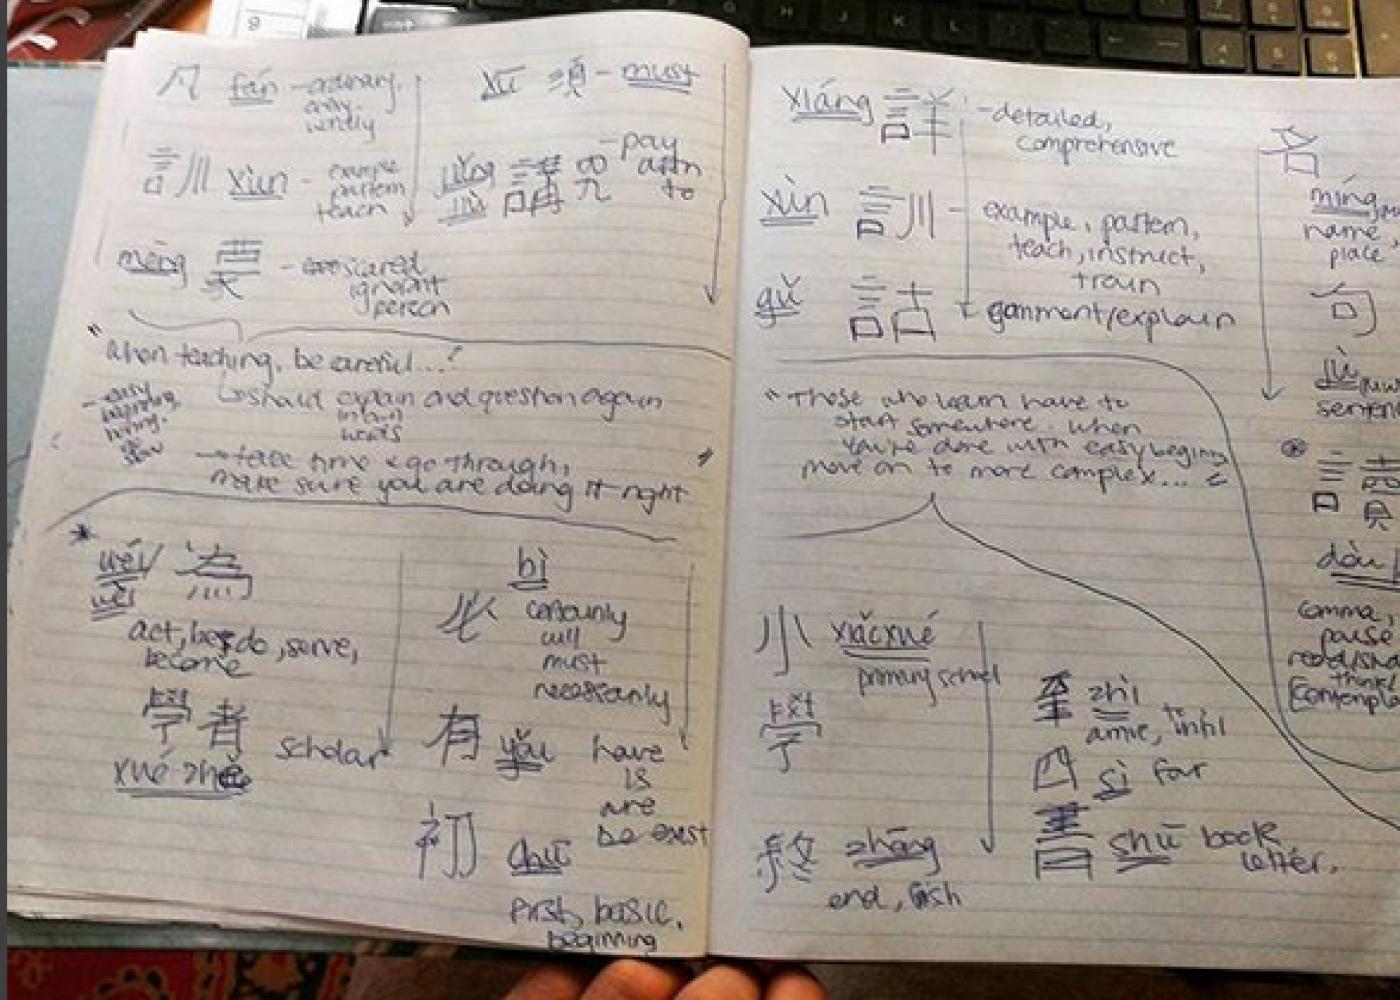 凡 fán - ordinary,
any,
訓 xùn - example
pattern
teach
méng 蒙 -
ignorant
person
xū 須 - must
講 究 - pay
attn
to
"when teaching, be careful...!
should explain and question again
- easy
→ take time & go through,
make sure you are doing it right"
* wéi/ 為
wèi
act, be, do, serve,
become
學者 scholar
xué zhě
bì
必 certainly
will
must
necessarily
有 yǒu have
is
are
be exist
初 chū
first, basic,
beginning
xiáng 詳 - detailed,
comprehensive
xùn 訓 - example, pattern,
teach, instruct,
train
gǔ 詁 explain
"Those who learn have to
start somewhere. when
you're done with easy beginning
move on to more complex...
小 xiǎo xué
primary school
學
終 zhōng
end,
至 zhì
四 sì
書 shū book
letter.
名
míng
name,
place
句
jù
讀
dòu
comma,
pause